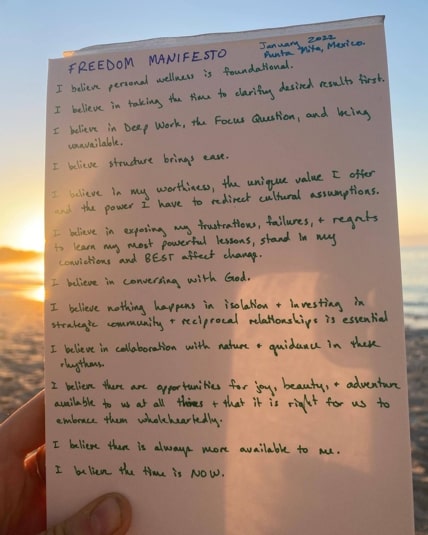 FREEDOM MANIFESTO
January 2022
Punta Mita, Mexico.
I believe personal wellness is foundational.
I believe in taking the time to clarify desired results first.
I believe in Deep Work, the Focus Question, and being
unavailable.
I believe structure brings ease.
I believe in my worthiness, the unique value I offer
and the power I have to redirect cultural assumptions.
I believe in exposing my frustrations, failures, + regrets
to learn my most powerful lessons, stand in my
convictions and BEST affect change.
I believe in conversing with God.
I believe nothing happens in isolation + investing in
strategic community + reciprocal relationships is essential
I believe in collaboration with nature + guidance in these
rhythms.
I believe there are opportunities for joy, beauty, + adventure
available to us at all times + that it is right for us to
embrace them wholeheartedly.
I believe there is always more available to me.
I believe the time is NOW.